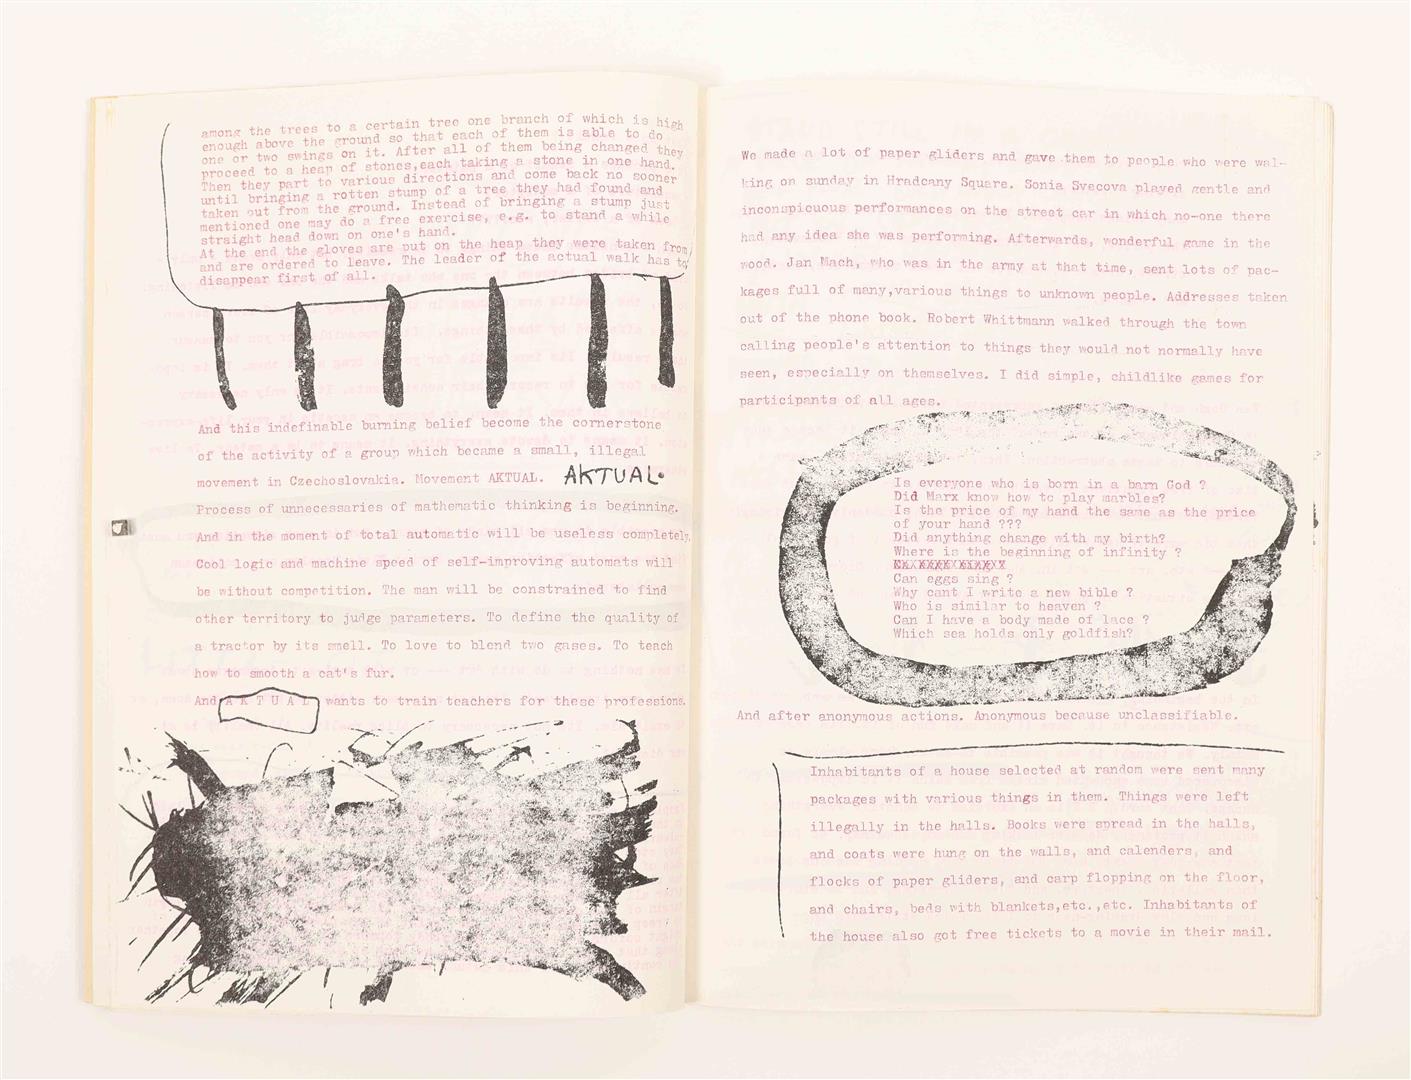 among the trees to a certain tree one branch of which is high
enough above the ground so that each of them is able to do
one or two swings on it. After all of them being changed they
proceed to a heap of stones,each taking a stone in one hand.
Then they part to various directions and come back no sooner
until bringing a rotten stump of a tree they had found and
taken out from the ground. Instead of bringing a stump just
mentioned one may do a free exercise, e.g. to stand a while
straight head down on one's hand.
At the end the gloves are put on the heap they were taken from
and are ordered to leave. The leader of the actual walk has to
disappear first of all.
And this indefinable burning belief become the cornerstone
of the activity of a group which became a small, illegal
movement in Czechoslovakia. Movement AKTUAL. AKTUAL.
Process of unnecessaries of mathematic thinking is beginning.
And in the moment of total automatic will be useless completely.
Cool logic and machine speed of self-improving automats will
be without competition. The man will be constrained to find
other territory to judge parameters. To define the quality of
a tractor by its smell. To love to blend two gases. To teach
how to smooth a cat's fur.
And A K T U A L wants to train teachers for these professions.
We made a lot of paper gliders and gave them to people who were wal-
king on sunday in Hradcany Square. Sonia Svecova played gentle and
inconspicuous performances on the street car in which no-one there
had any idea she was performing. Afterwards, wonderful game in the
wood. Jan Mach, who was in the army at that time, sent lots of pac-
kages full of many,various things to unknown people. Addresses taken
out of the phone book. Robert Whittmann walked through the town
calling people's attention to things they would not normally have
seen, especially on themselves. I did simple, childlike games for
participants of all ages.
Is everyone who is born in a barn God ?
Did Marx know how to play marbles?
Is the price of my hand the same as the price
of your hand ???
Did anything change with my birth?
Where is the beginning of infinity ?
Can eggs sing ?
Why cant I write a new bible ?
Who is similar to heaven ?
Can I have a body made of lace ?
Which sea holds only goldfish?
And after anonymous actions. Anonymous because unclassifiable.
Inhabitants of a house selected at random were sent many
packages with various things in them. Things were left
illegally in the halls. Books were spread in the halls,
and coats were hung on the walls, and calenders, and
flocks of paper gliders, and carp flopping on the floor,
and chairs, beds with blankets,etc.,etc. Inhabitants of
the house also got free tickets to a movie in their mail.